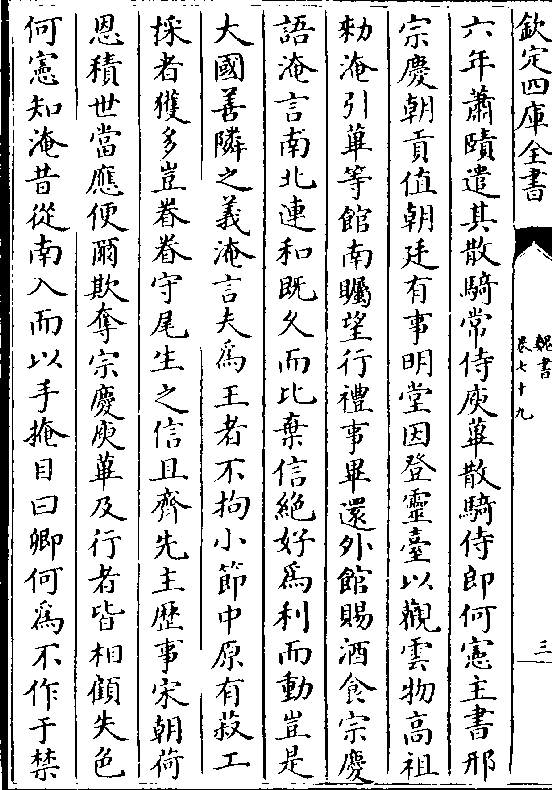 欽定四庫全書
魏書
卷七十九
三
六年蕭賾遣其散騎常侍庾蓽散騎侍郎何憲主書邢
宗慶朝貢值朝廷有事明堂因登靈臺以觀雲物高祖
勑淹引蓽等館南矚望行禮事畢還外館賜酒食宗慶
語淹言南北連和既久而比棄信絶好為利而動豈是
大國善隣之義淹言夫為王者不拘小節中原有菽工
採者獲多豈眷眷守尾生之信且齊先主歴事宋朝荷
恩積世當應便爾欺奪宗慶庾蓽及行者皆相顧失色
何憲知淹昔從南入而以手掩目曰卿何為不作于禁